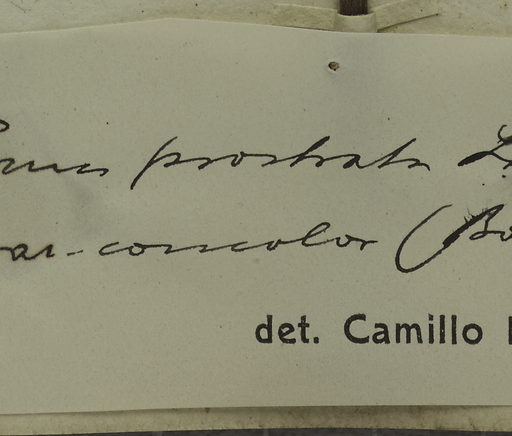 prostrata L
var. concolor (Bo
det. Camillo